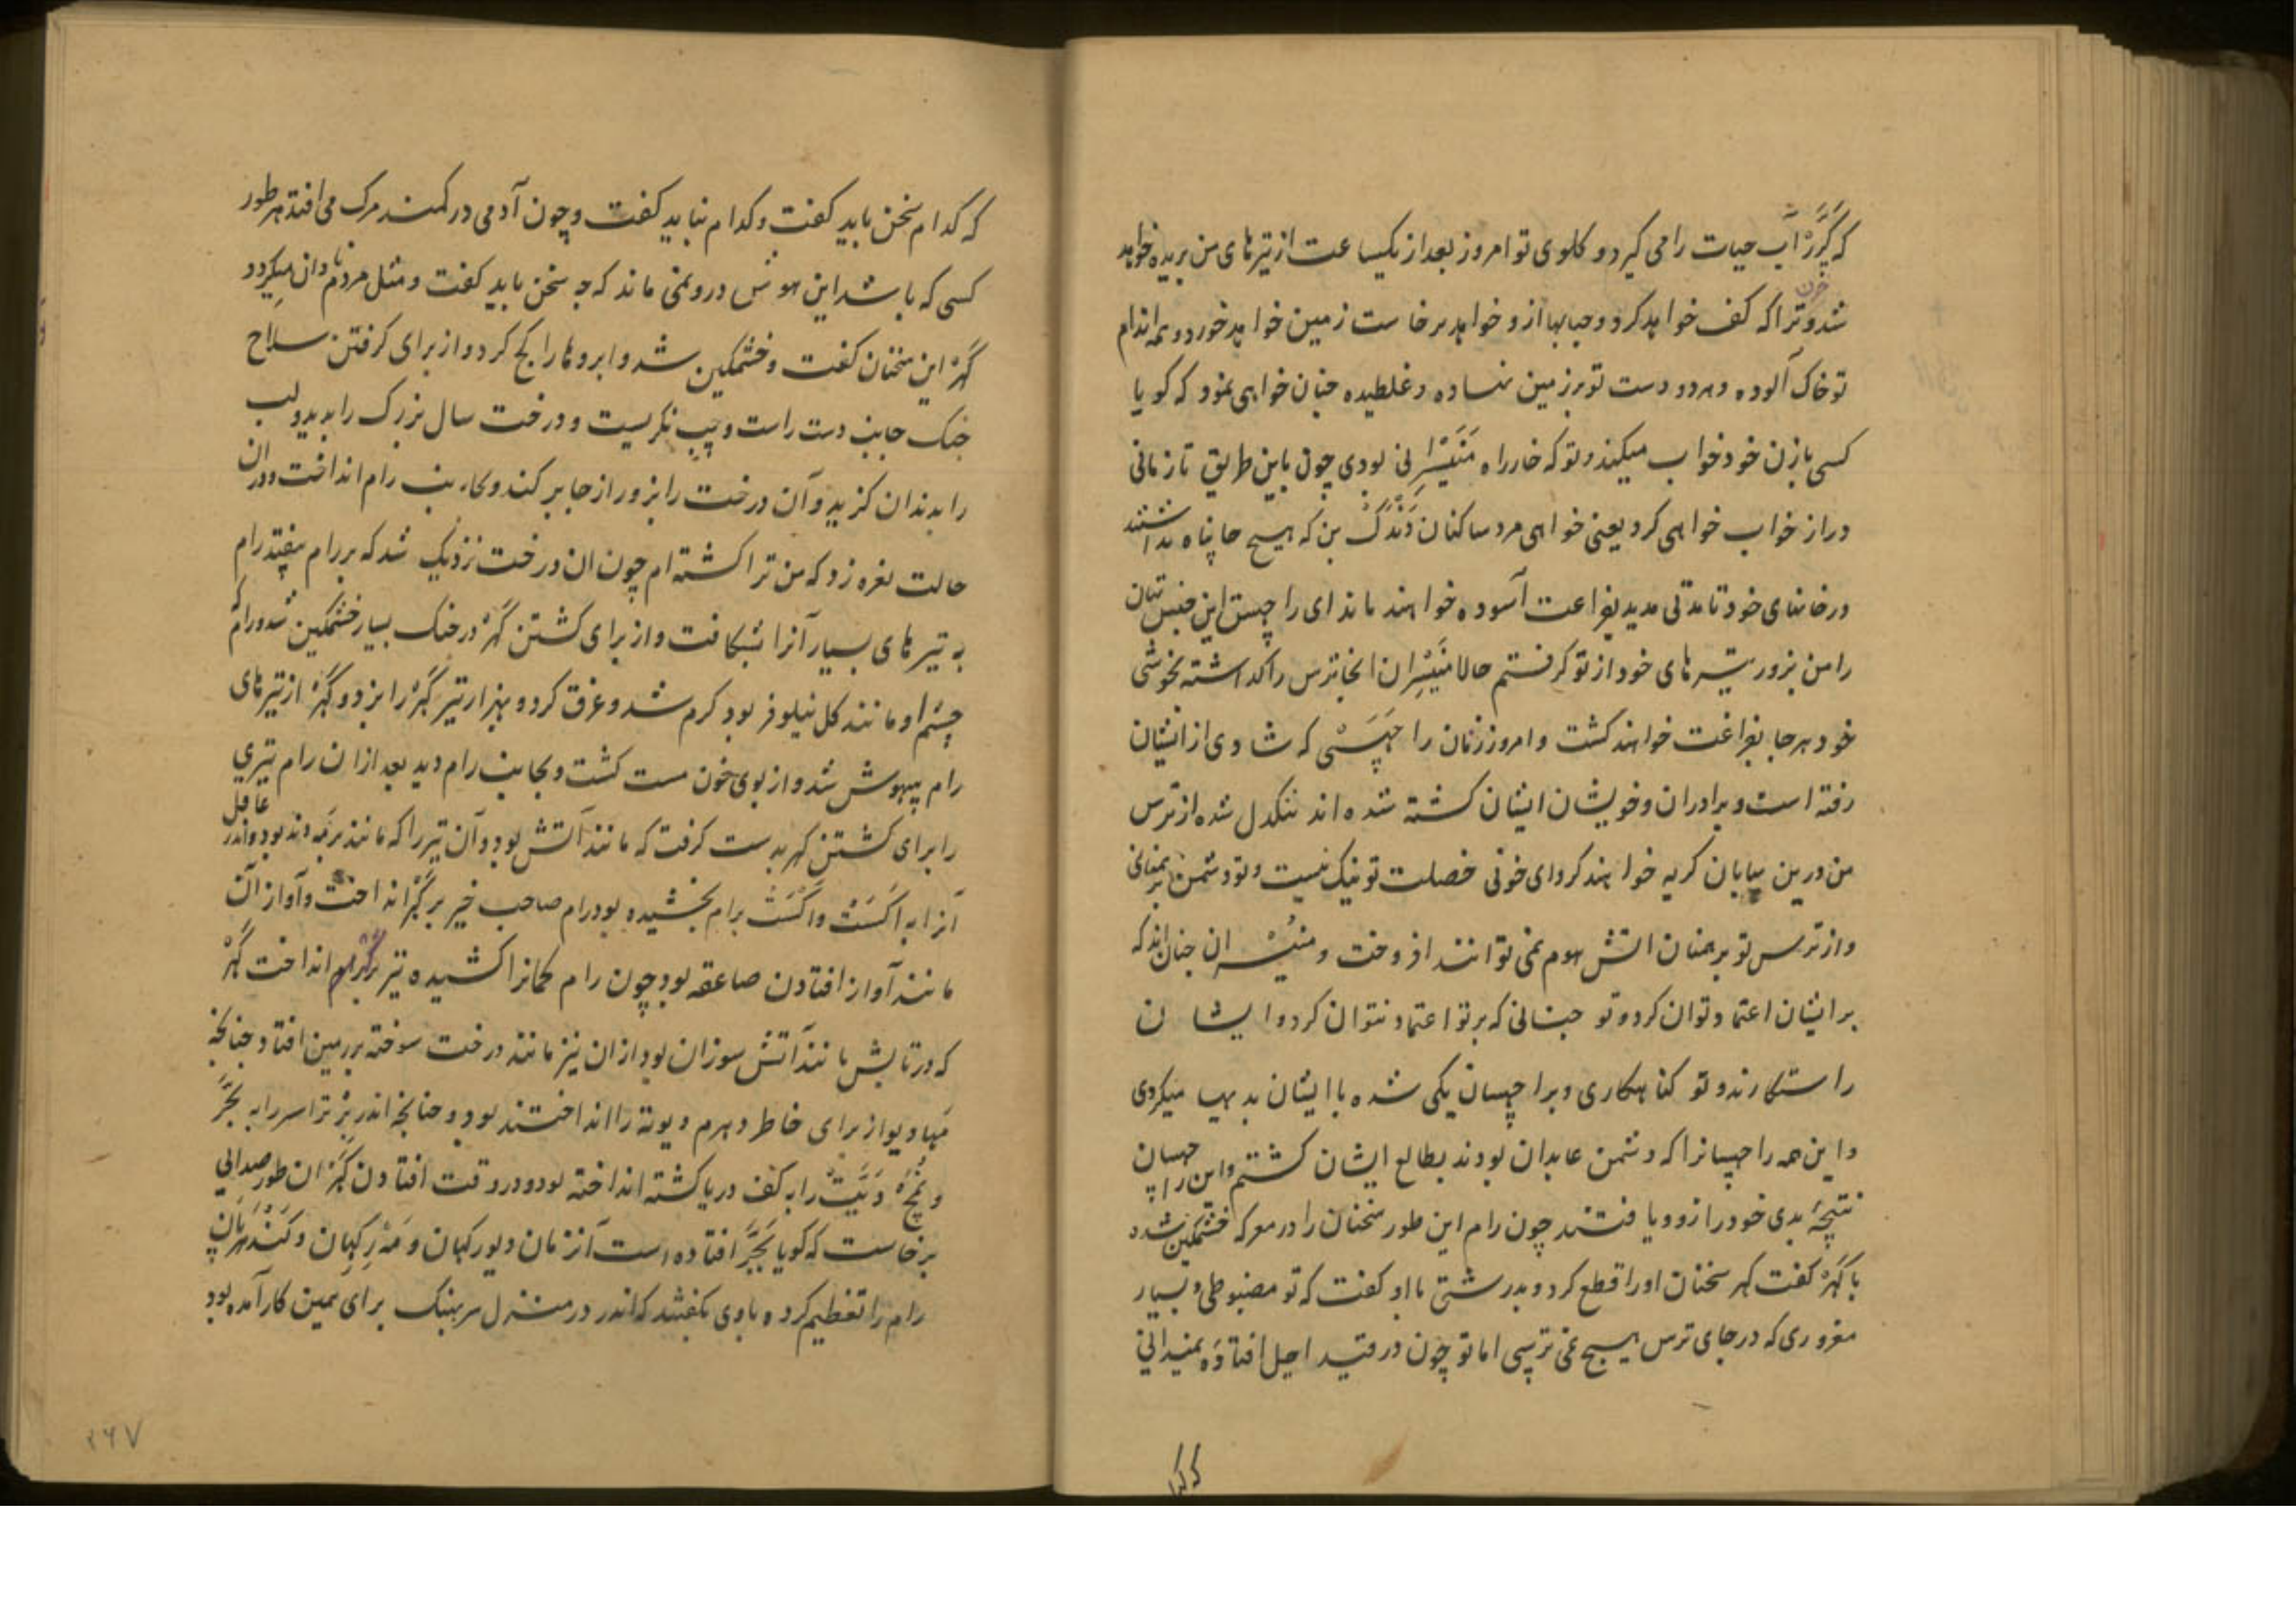 که گَرَرْ آب حیات را می گیرد و کلوی تو امروز بعد از یکساعت از تیرهای من بریده خواهد
شد و خون ترا که کف خواهد کرد و حبابها ازو خواهد برخاست زمین خواهد خورد و همه اندام
تو خاک آلوده و هر دو دست تو بر زمین نهاده و غلطیده چنان خواهی نمود که کویا
کسی با زن خود خواب میکند و تو که خار راه مَنَیْشِرانی بودی چون باین طریق تا زمانی
دراز خواب خواهی کرد یعنی خواهی مرد ساکنان دَنْدَکْ بن که هیچ جا پناه نداشتند
در خانهای خود تا مدتی مدید بفراغت آسوده خواهند ماند ای راچهس این جنس تان
را من بزور تیرهای خود از تو کرفتم حالا مَنَیْشِران انجا ترس را کذاشته بخوشی
خود هر جا بفراغت خواهند کشت و امروز زنان راچَهَسْی که شادی از ایشان
رفته است و برادران و خویشان ایشان کشته شده اند تنکدل شده از ترس
من درین بیابان کریه خواهند کرد ای خونی خصلت تو نیک نیست و تو دشمن برهمنانی
و از ترس تو برهمنان اتش هوم نمی توانند افروخت و منیشران چنان اند که
بر ایشان اعتماد توان کرد و تو چنانی که بر تو اعتماد نتوان کرد و ایشان
راستکارند و تو کناهکاری و براچهسان یکی شده با ایشان بدیها میکردی
و این همه راچهسانرا که دشمن عابدان بودند بطالع ایشان کشتم و این راچهسان
نتیجهٔ بدی خود را زود یافتند چون رام این طور سخنان را در معرکه خشمکین شده
با کَهَرْ کفت کهر سخنان او را قطع کرد و بدرشتی با او کفت که تو مضبوطی و بسیار
مغروری که در جای ترس هیچ نمی ترسی اما تو چون در قید اجل افتادهٔ نمیدانی
که کدام سخن باید کفت و کدام نباید کفت و چون آدمی در کمند مرک می افتد هر طور
کسی که باشد این هوش درو نمی ماند که چه سخن باید کفت و مثل مردم نادان میکردد
کَهَرْ این سخنان کفت و خشمکین شد و ابروها را کج کرد و از برای کرفتن سلاح
جنک جانب دست راست و چپ نکریست و درخت سال بزرک را بدید و لب
را بدندان کزید و آن درخت را بزور از جا بر کند و بجانب رام انداخت و در ان
حالت نعره زد که من ترا کشته ام چون ان درخت نزدیک شد که بر رام بیفتد رام
به تیرهای بسیار آنرا بشکافت و از برای کشتن کَهَرْ در جنک بسیار خشمکین شد و رام که
چشم او مانند کل نیلوفر بود کرم شد و عرق کرد و بهزار تیر کَهَرْ را بزد و کَهَرْ از تیرهای
رام بیهوش شد و از بوی خون مست کشت و بجانب رام دوید بعد ازان رام تیری
را برای کشتن کهر بدست کرفت که مانند آتش بود و آن تیر را که مانند برمه دند بود و اندر عاقل
آنرا به اَکَسَتْ و اَکَسَتْ برام بخشیده بود رام صاحب خیر بر کَهَرْ انداخت و آواز آن
مانند آواز افتادن صاعقه بود چون رام کمانرا کشیده تیر بر کهر انداخت کَهَرْ
که در تابش مانند آتش سوزان بود ازان تیر مانند درخت سوخته بر زمین افتاد چنانچه
مهادیو از برای خاطر دهرم دیوته را انداختند بود و چنانچه اندر برتراسر را به بجر
و نمچ دَیَتْ را به کف دریا کشته انداخته بود و در وقت افتادن کَهَرْ ان طور صدایی
برخاست که کویا بَجَرْ افتاده است آنزمان دیورکهان و مَهَرْکِهان و کَنْدهَرْبان
رام را تعظیم کرده با وی بکفتند که اندر در منزل سربهنک برای همین کار آمده بود
۲۶۷